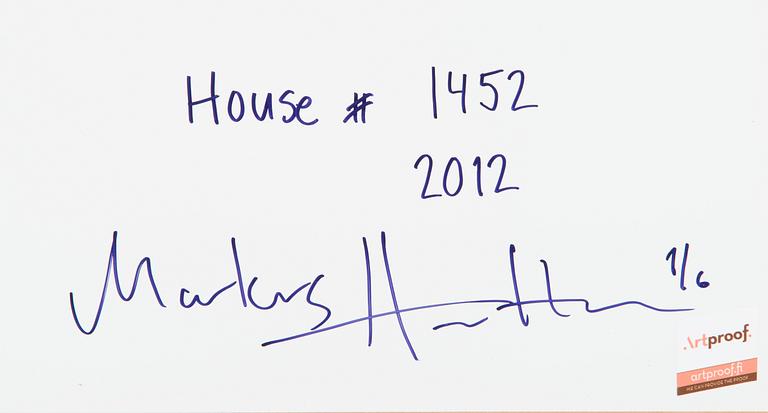 House # 1452
2012
Markus H
1/6
Artproof.
artproof.fi
WE CAN PROVIDE THE PROOF